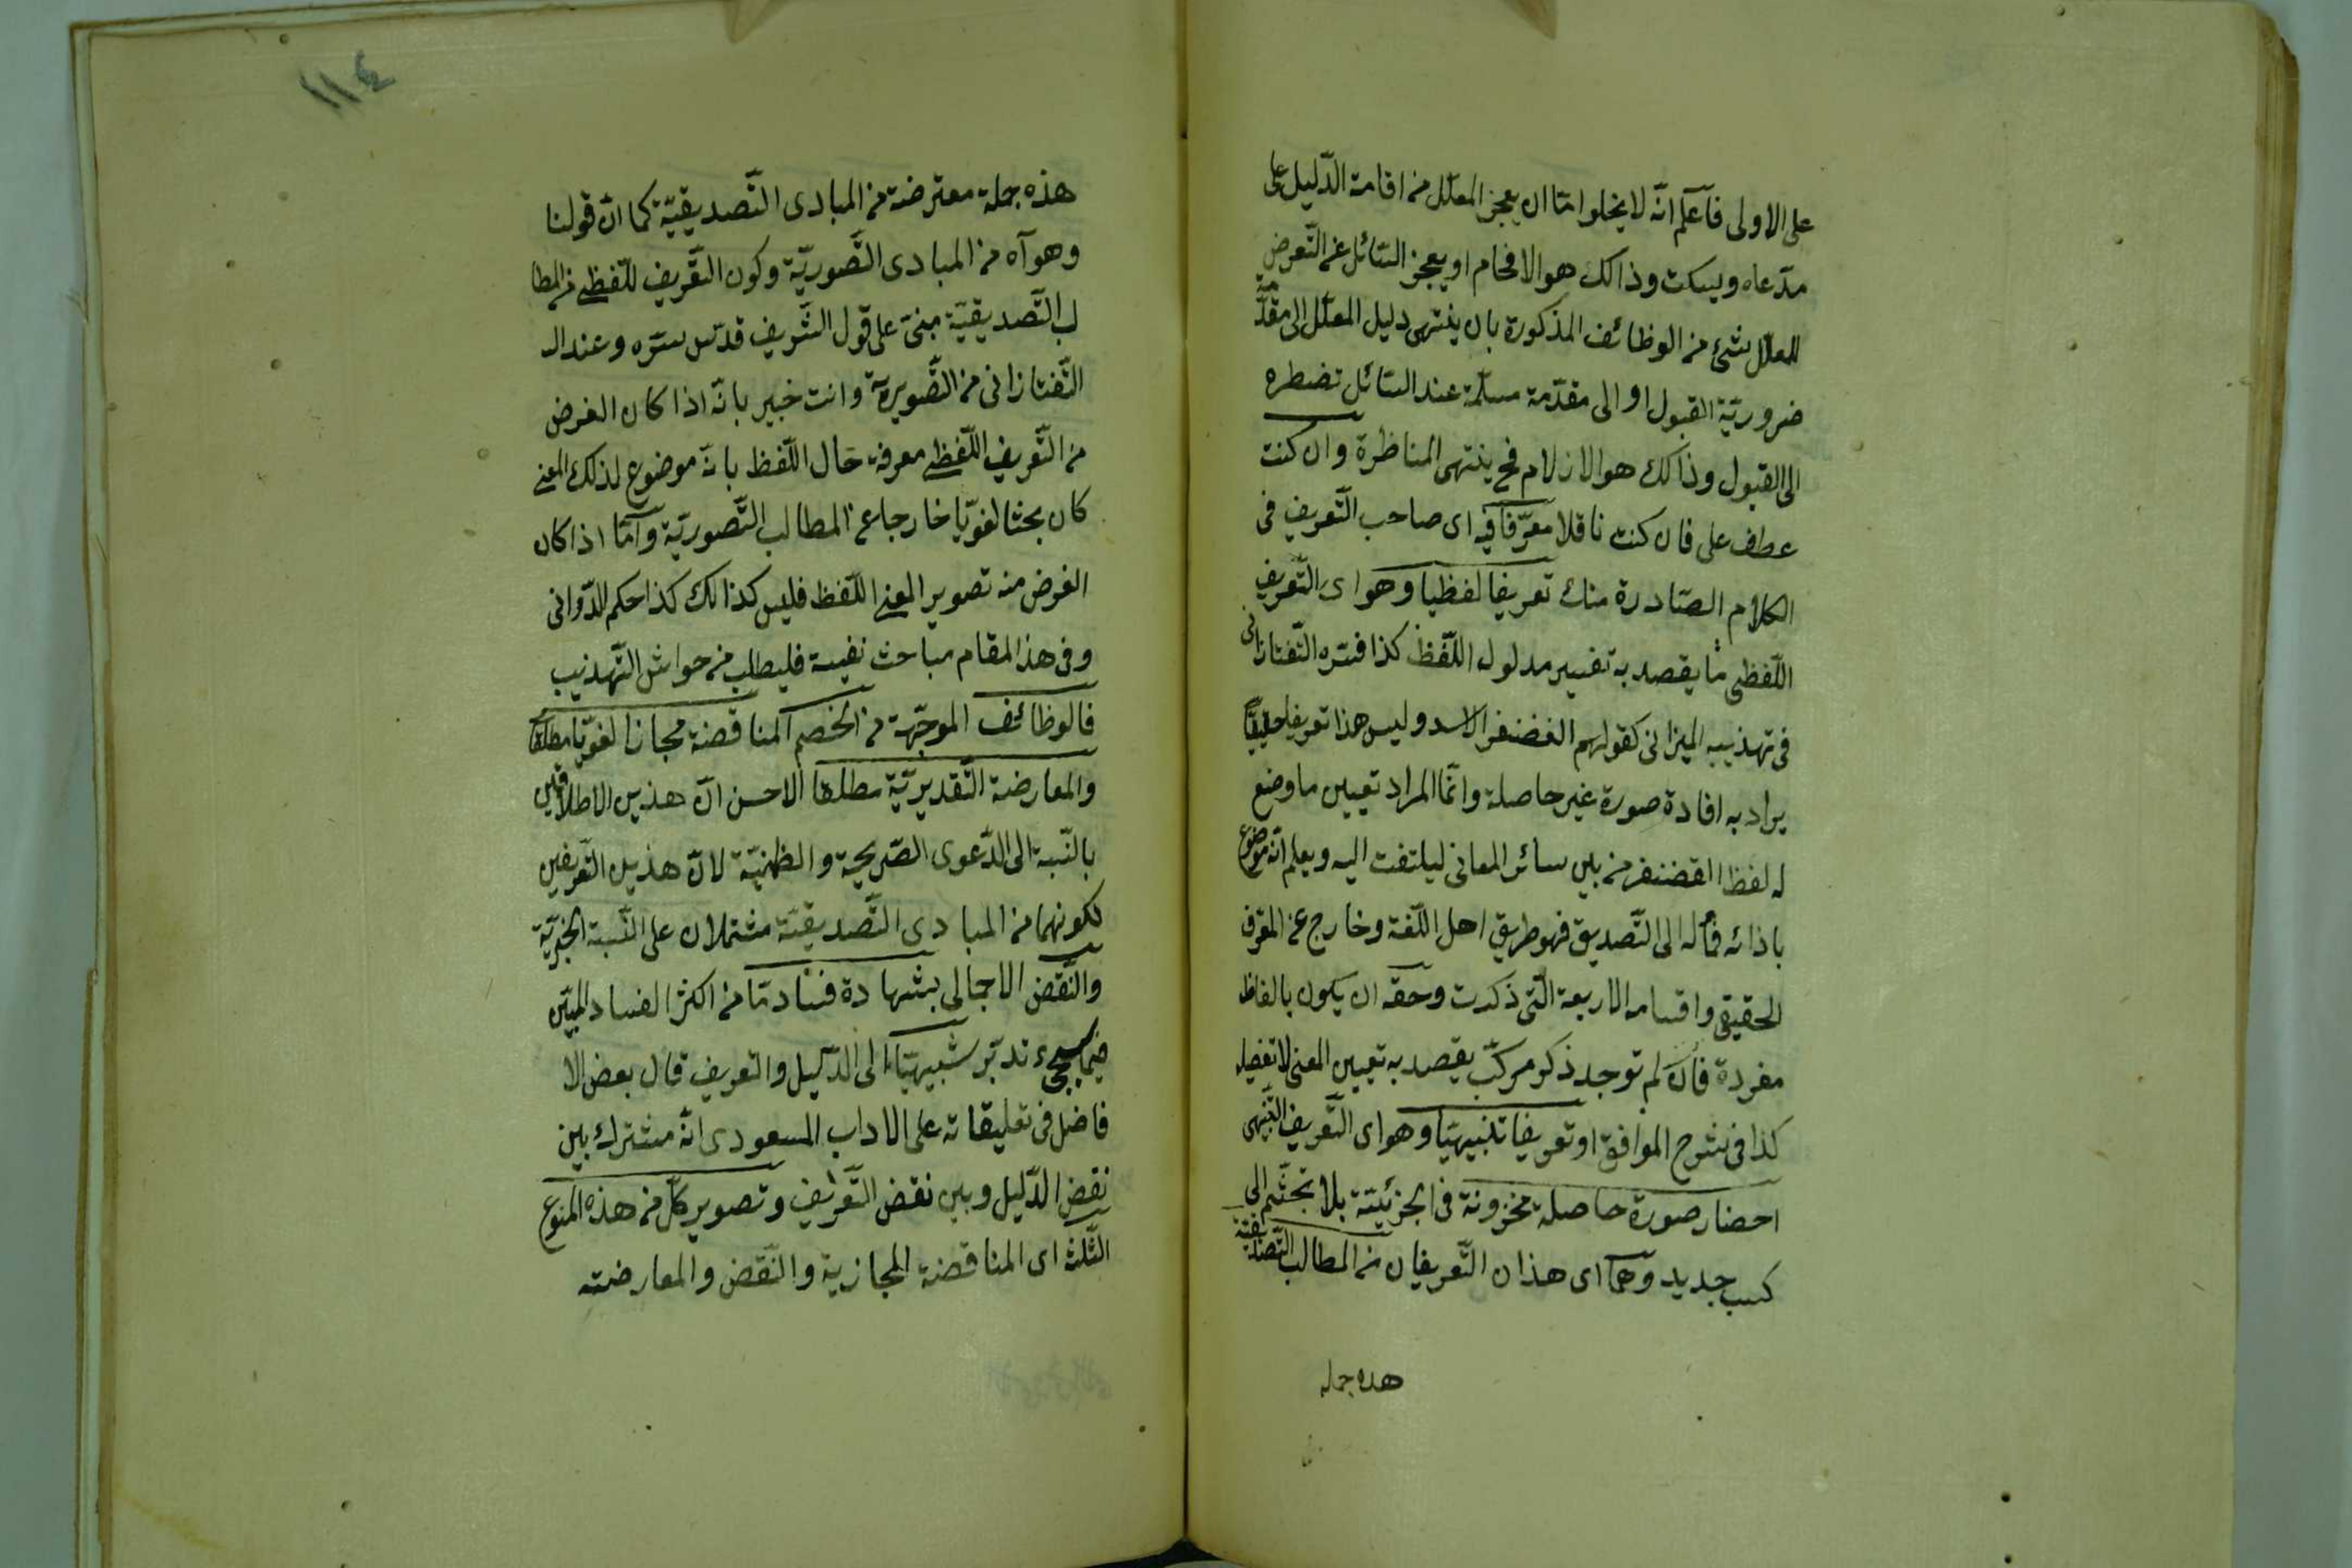 على الاولى فآعلم انّه لا يخلوا امّا ان يعجز المعلّل من اقامة الدّليل على
مدّعاه ويسكت وذالك هو الافحام او يعجز السّائل عن التّعرض
للمعلّل بشئ من الوظائف المذكورة بان ينتهى دليل المعلّل الى مقدّمة
ضروريّة القبول او الى مقدّمة مسلّمة عند السّائل تضطره
الى القبول وذالك هو الازلام فح ينتهى المناظرة وان كنت
عطف على فان كنت ناقلا معرّفا فيه اى صاحب التّعريف فى
الكلام الصّادرة منك تعريفا لفظيا وهو اى التّعريف
اللّفظى ما يقصد به تفسير مدلول اللّفظ كذا فسّره التّفتازانى
فى تهذيبه الميزانى كقولهم الغضنفر الاسد وليس هذا تعريفا حقيقيّا
يراد به افادة صورة غير حاصلة وانّما المراد تعيين ما وضع
له لفظ القضنفر من بين سائر المعانى ليلتفت اليه ويعلم انّه موضوع
باذائه فمأله الى التّصديق فهو طريق اهل اللّغة وخارج عن المعّرف
الحقيقى واقسامه الاربعة الّتى ذكرت وحقّه ان يكون بالفاظ
مفردة فان لم توجد ذكر مركّب يقصد به تعيين المعنى لا تفصيله
كذا فى شرح الموافق او تعريفا تنبيهيّا وهو اى التّعريف التّنبيهى
احضار صورة حاصلة مخزونة فى الجزئيّة بلا تجشّم الى
كسب جديد وهما اى هذان التّعريفان من المطالب التّصديقيّة
هذه جمله
١١٤
هذه جملة معترضة من المبادى التّصديقيّة كما انّ قولنا
وهو آه من المبادى التّصوريّة وكون التّعريف اللّفظى من المطا
لب التّصديقيّة مبنىّ على قول الشّريف قدّس سرّه وعند ال
التّفتازانى من التّصويريّة وانت خبير بانّه اذا كان الغرض
من التّعريف اللّفظى معرفة حال اللّفظ بانّه موضوع لذلك المعنى
كان بحثا لغويّا خارجا عن المطالب التّصوريّة وآمّا اذا كان
الغرض منه تصوير المعنى اللّفظ فليس كذالك كذا حكم الدّوانى
وفى هذا المقام مباحث نفيسة فليطلب من حواش التّهذيب
فالوظائف الموجّهة من الخصم المناقضة مجازا لغويّا مطلقا
والمعارضة التّقديريّة مطلقا الاحسن انّ هذين الاطلاقين
بالنّسبة الى الدّعوى الصّريحية والظمنيّة لانّ هذين التّعريفين
لكونهما من المبادى التّصديقيّة مشتملان على النّسبة الخبريّة
والنّقض الاجمالى بشهادة فساد مّا من اكثر الفساد المبيّن
فيما سيجئ تدبّر شبيهيّا الى الدّليل والتعريف قال بعض الا
فاضل فى تعليقاته على الاداب المسعودى انّه مشترك بين
نقض الدّليل وبين نقض التّعريف وتصوير كلّ من هذه المنوع
الثّلث اى المناقضة المجازية والنّقض والمعارضته